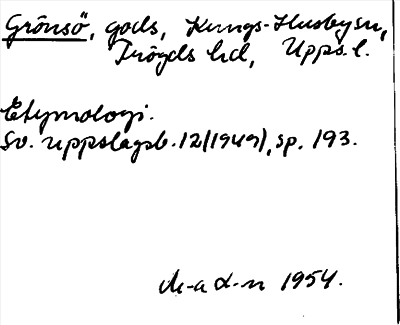 Grönsö, gods, Kungs-Husby sn,
Trögds hd, Upps. l.
Etymologi.
Sv. uppslagsb. 12 (1949), sp. 193.
M-a d-n 1954.